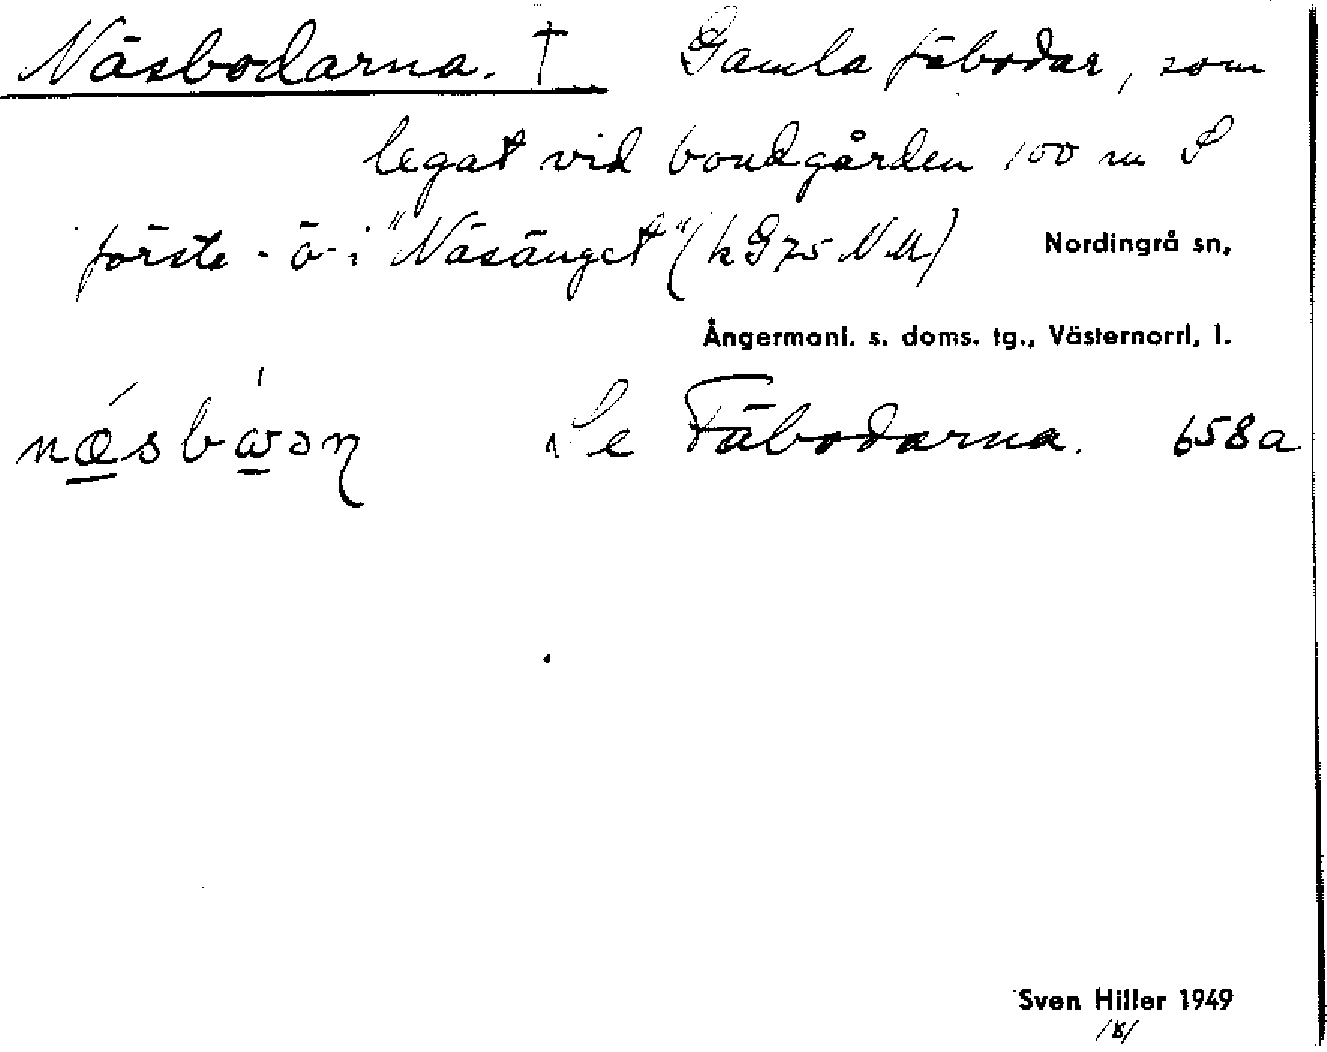 Näsbodarna. † Gamla fäbodar, som
legat vid bondgården 100 m S
förste -ä- i "Näsänget" (k G 75 N M)
Nordingrå sn,
Ångermanl. s. doms. tg., Västernorrl. l.
næ´sbω´ən Se Fäbodarna. 658a
Sven Hiller 1949
/8/